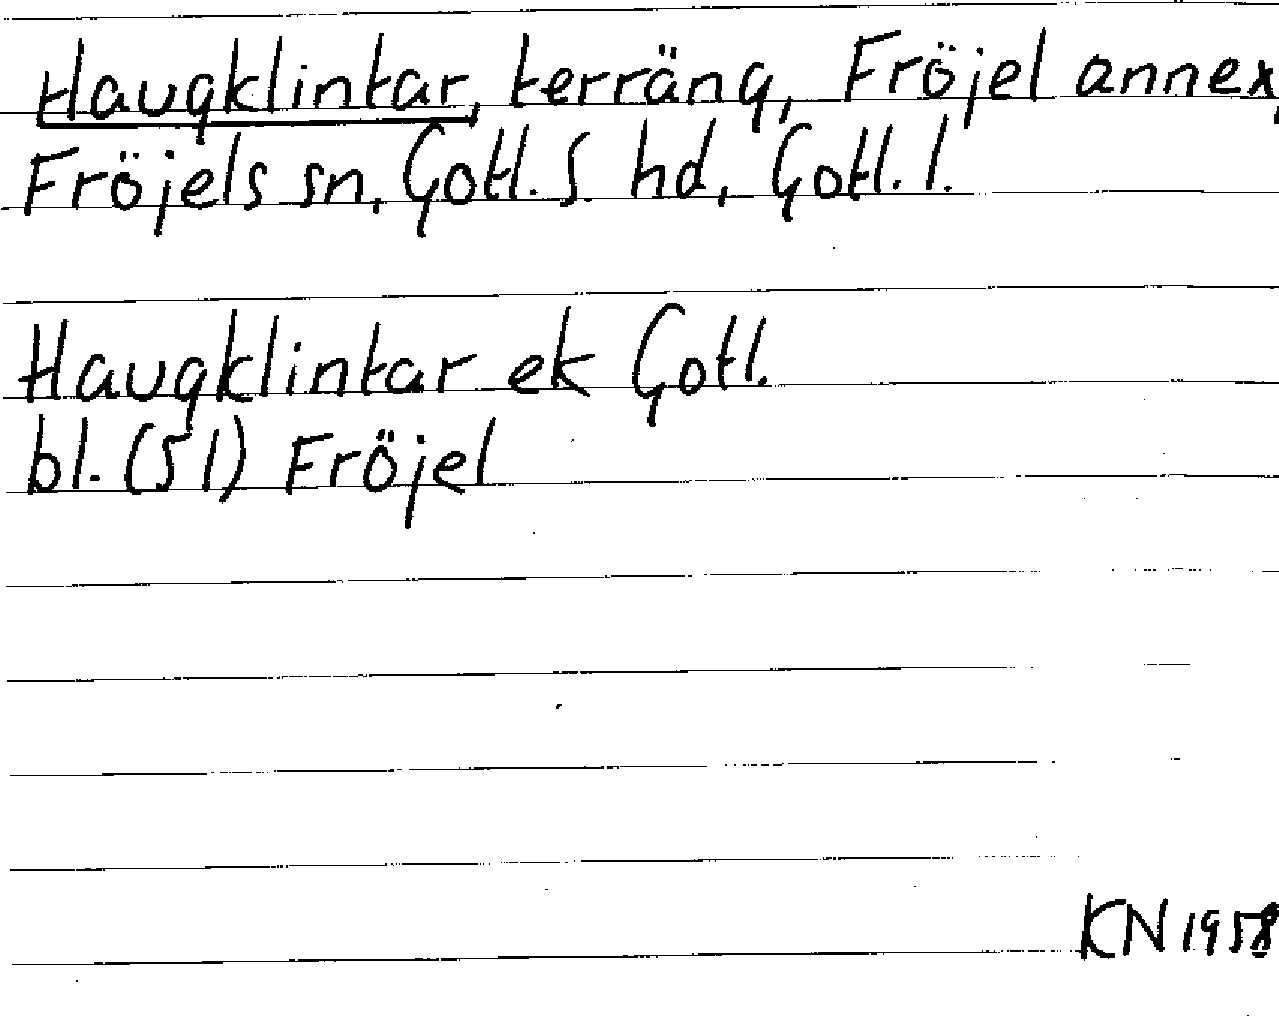 Haugklintar, terräng, Fröjel annex,
Fröjels sn, Gotl. S. hd, Gotl. l.
Haugklintar ek Gotl.
bl. (51) Fröjel
KN 1958